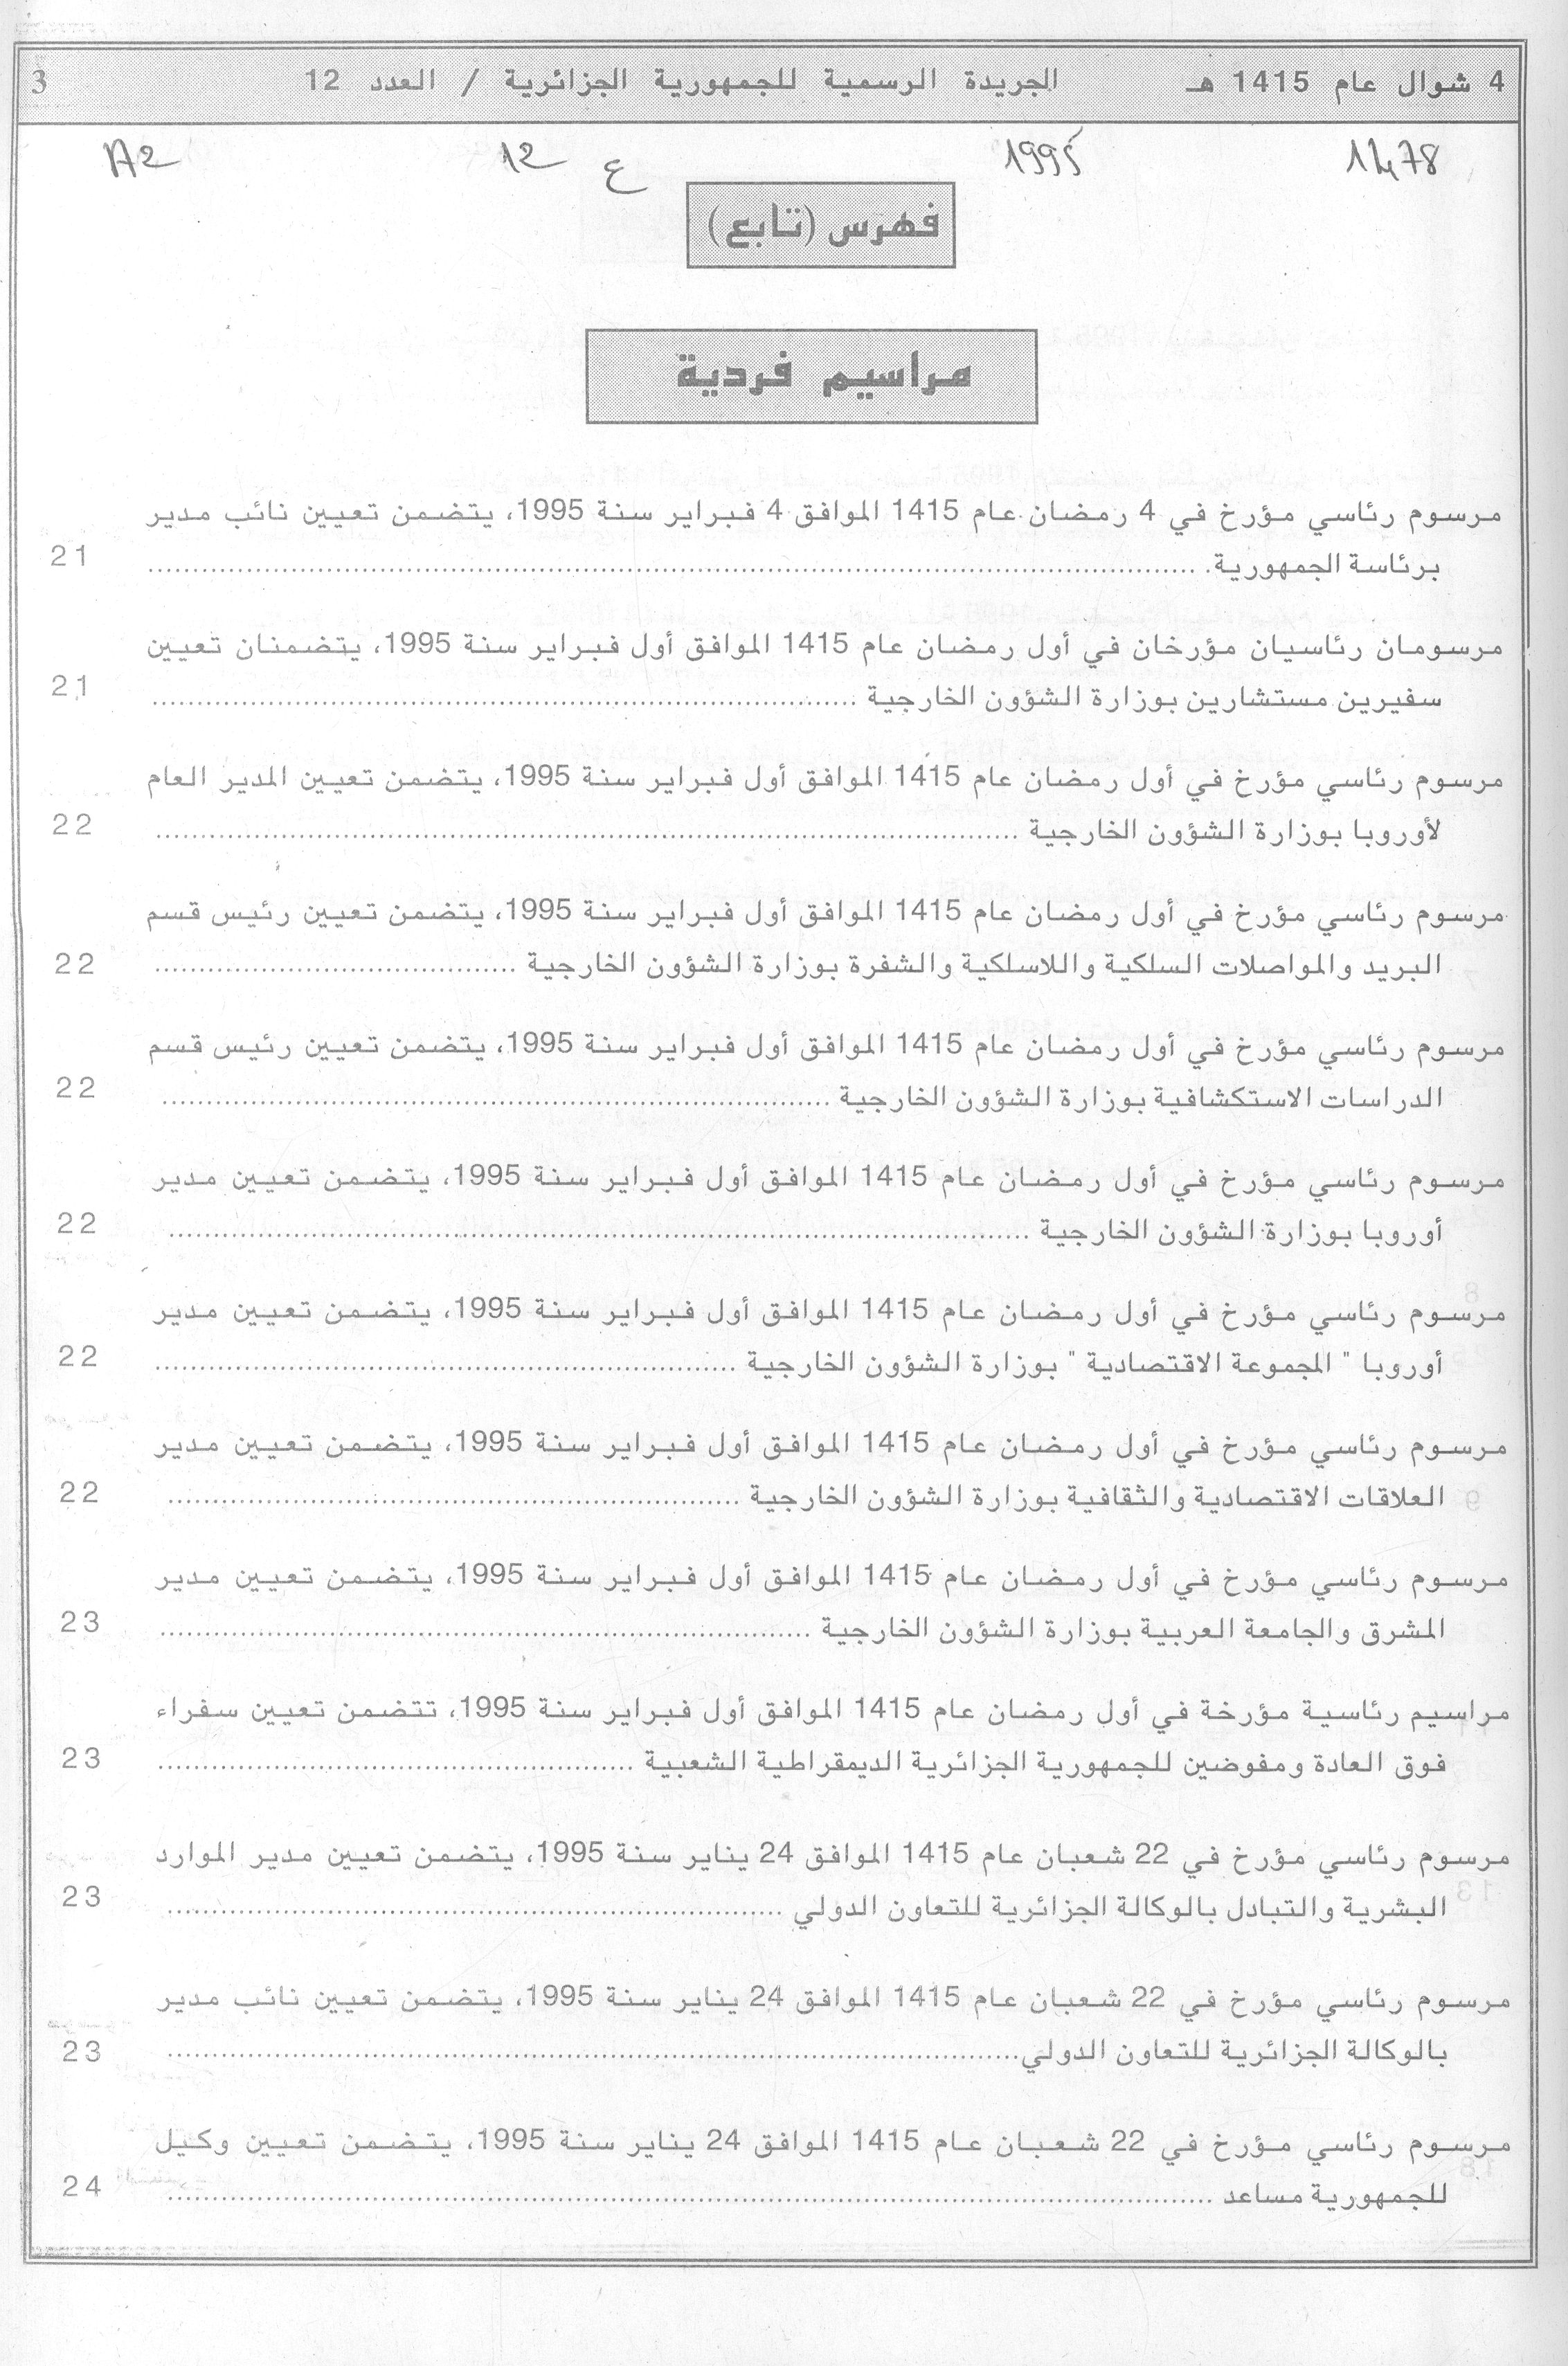 4 شوال عام 1415 هـ الجريدة الرسمية للجمهورية الجزائرية / العدد 12 3
1478 1995 ع 12 A2
فهرس (تابع)
مراسيم فردية
مرسوم رئاسي مؤرخ في 4 رمضان عام 1415 الموافق 4 فبراير سنة 1995، يتضمن تعيين نائب مدير
برئاسة الجمهورية. 21
مرسومان رئاسيان مؤرخان في أول رمضان عام 1415 الموافق أول فبراير سنة 1995، يتضمنان تعيين
سفيرين مستشارين بوزارة الشؤون الخارجية 21
مرسوم رئاسي مؤرخ في أول رمضان عام 1415 الموافق أول فبراير سنة 1995، يتضمن تعيين المدير العام
لأوروبا بوزارة الشؤون الخارجية 22
مرسوم رئاسي مؤرخ في أول رمضان عام 1415 الموافق أول فبراير سنة 1995، يتضمن تعيين رئيس قسم
البريد والمواصلات السلكية واللاسلكية والشفرة بوزارة الشؤون الخارجية 22
مرسوم رئاسي مؤرخ في أول رمضان عام 1415 الموافق أول فبراير سنة 1995، يتضمن تعيين رئيس قسم
الدراسات الاستكشافية بوزارة الشؤون الخارجية 22
مرسوم رئاسي مؤرخ في أول رمضان عام 1415 الموافق أول فبراير سنة 1995، يتضمن تعيين مدير
أوروبا بوزارة الشؤون الخارجية 22
مرسوم رئاسي مؤرخ في أول رمضان عام 1415 الموافق أول فبراير سنة 1995، يتضمن تعيين مدير
أوروبا " المجموعة الاقتصادية " بوزارة الشؤون الخارجية 22
مرسوم رئاسي مؤرخ في أول رمضان عام 1415 الموافق أول فبراير سنة 1995، يتضمن تعيين مدير
العلاقات الاقتصادية والثقافية بوزارة الشؤون الخارجية 22
مرسوم رئاسي مؤرخ في أول رمضان عام 1415 الموافق أول فبراير سنة 1995، يتضمن تعيين مدير
المشرق والجامعة العربية بوزارة الشؤون الخارجية 23
مراسيم رئاسية مؤرخة في أول رمضان عام 1415 الموافق أول فبراير سنة 1995، تتضمن تعيين سفراء
فوق العادة ومفوضين للجمهورية الجزائرية الديمقراطية الشعبية 23
مرسوم رئاسي مؤرخ في 22 شعبان عام 1415 الموافق 24 يناير سنة 1995، يتضمن تعيين مدير الموارد
البشرية والتبادل بالوكالة الجزائرية للتعاون الدولي 23
مرسوم رئاسي مؤرخ في 22 شعبان عام 1415 الموافق 24 يناير سنة 1995، يتضمن تعيين نائب مدير
بالوكالة الجزائرية للتعاون الدولي 23
مرسوم رئاسي مؤرخ في 22 شعبان عام 1415 الموافق 24 يناير سنة 1995، يتضمن تعيين وكيل
للجمهورية مساعد 24